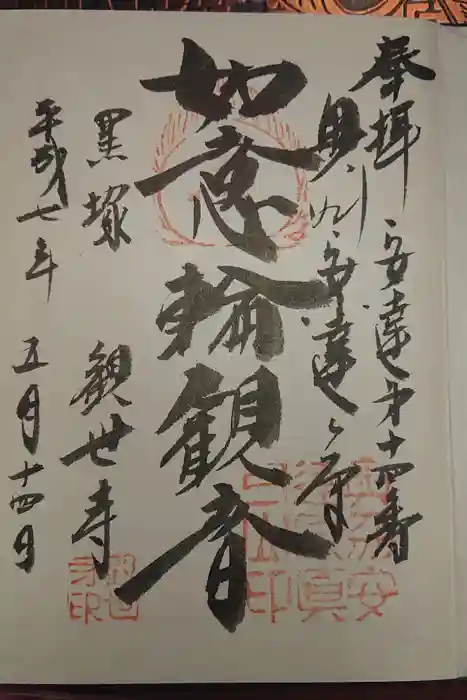 奉拝 安達第十四番
奥州安達ヶ原
如意輪観音
黒塚 観世寺
平成七年 五月十四日